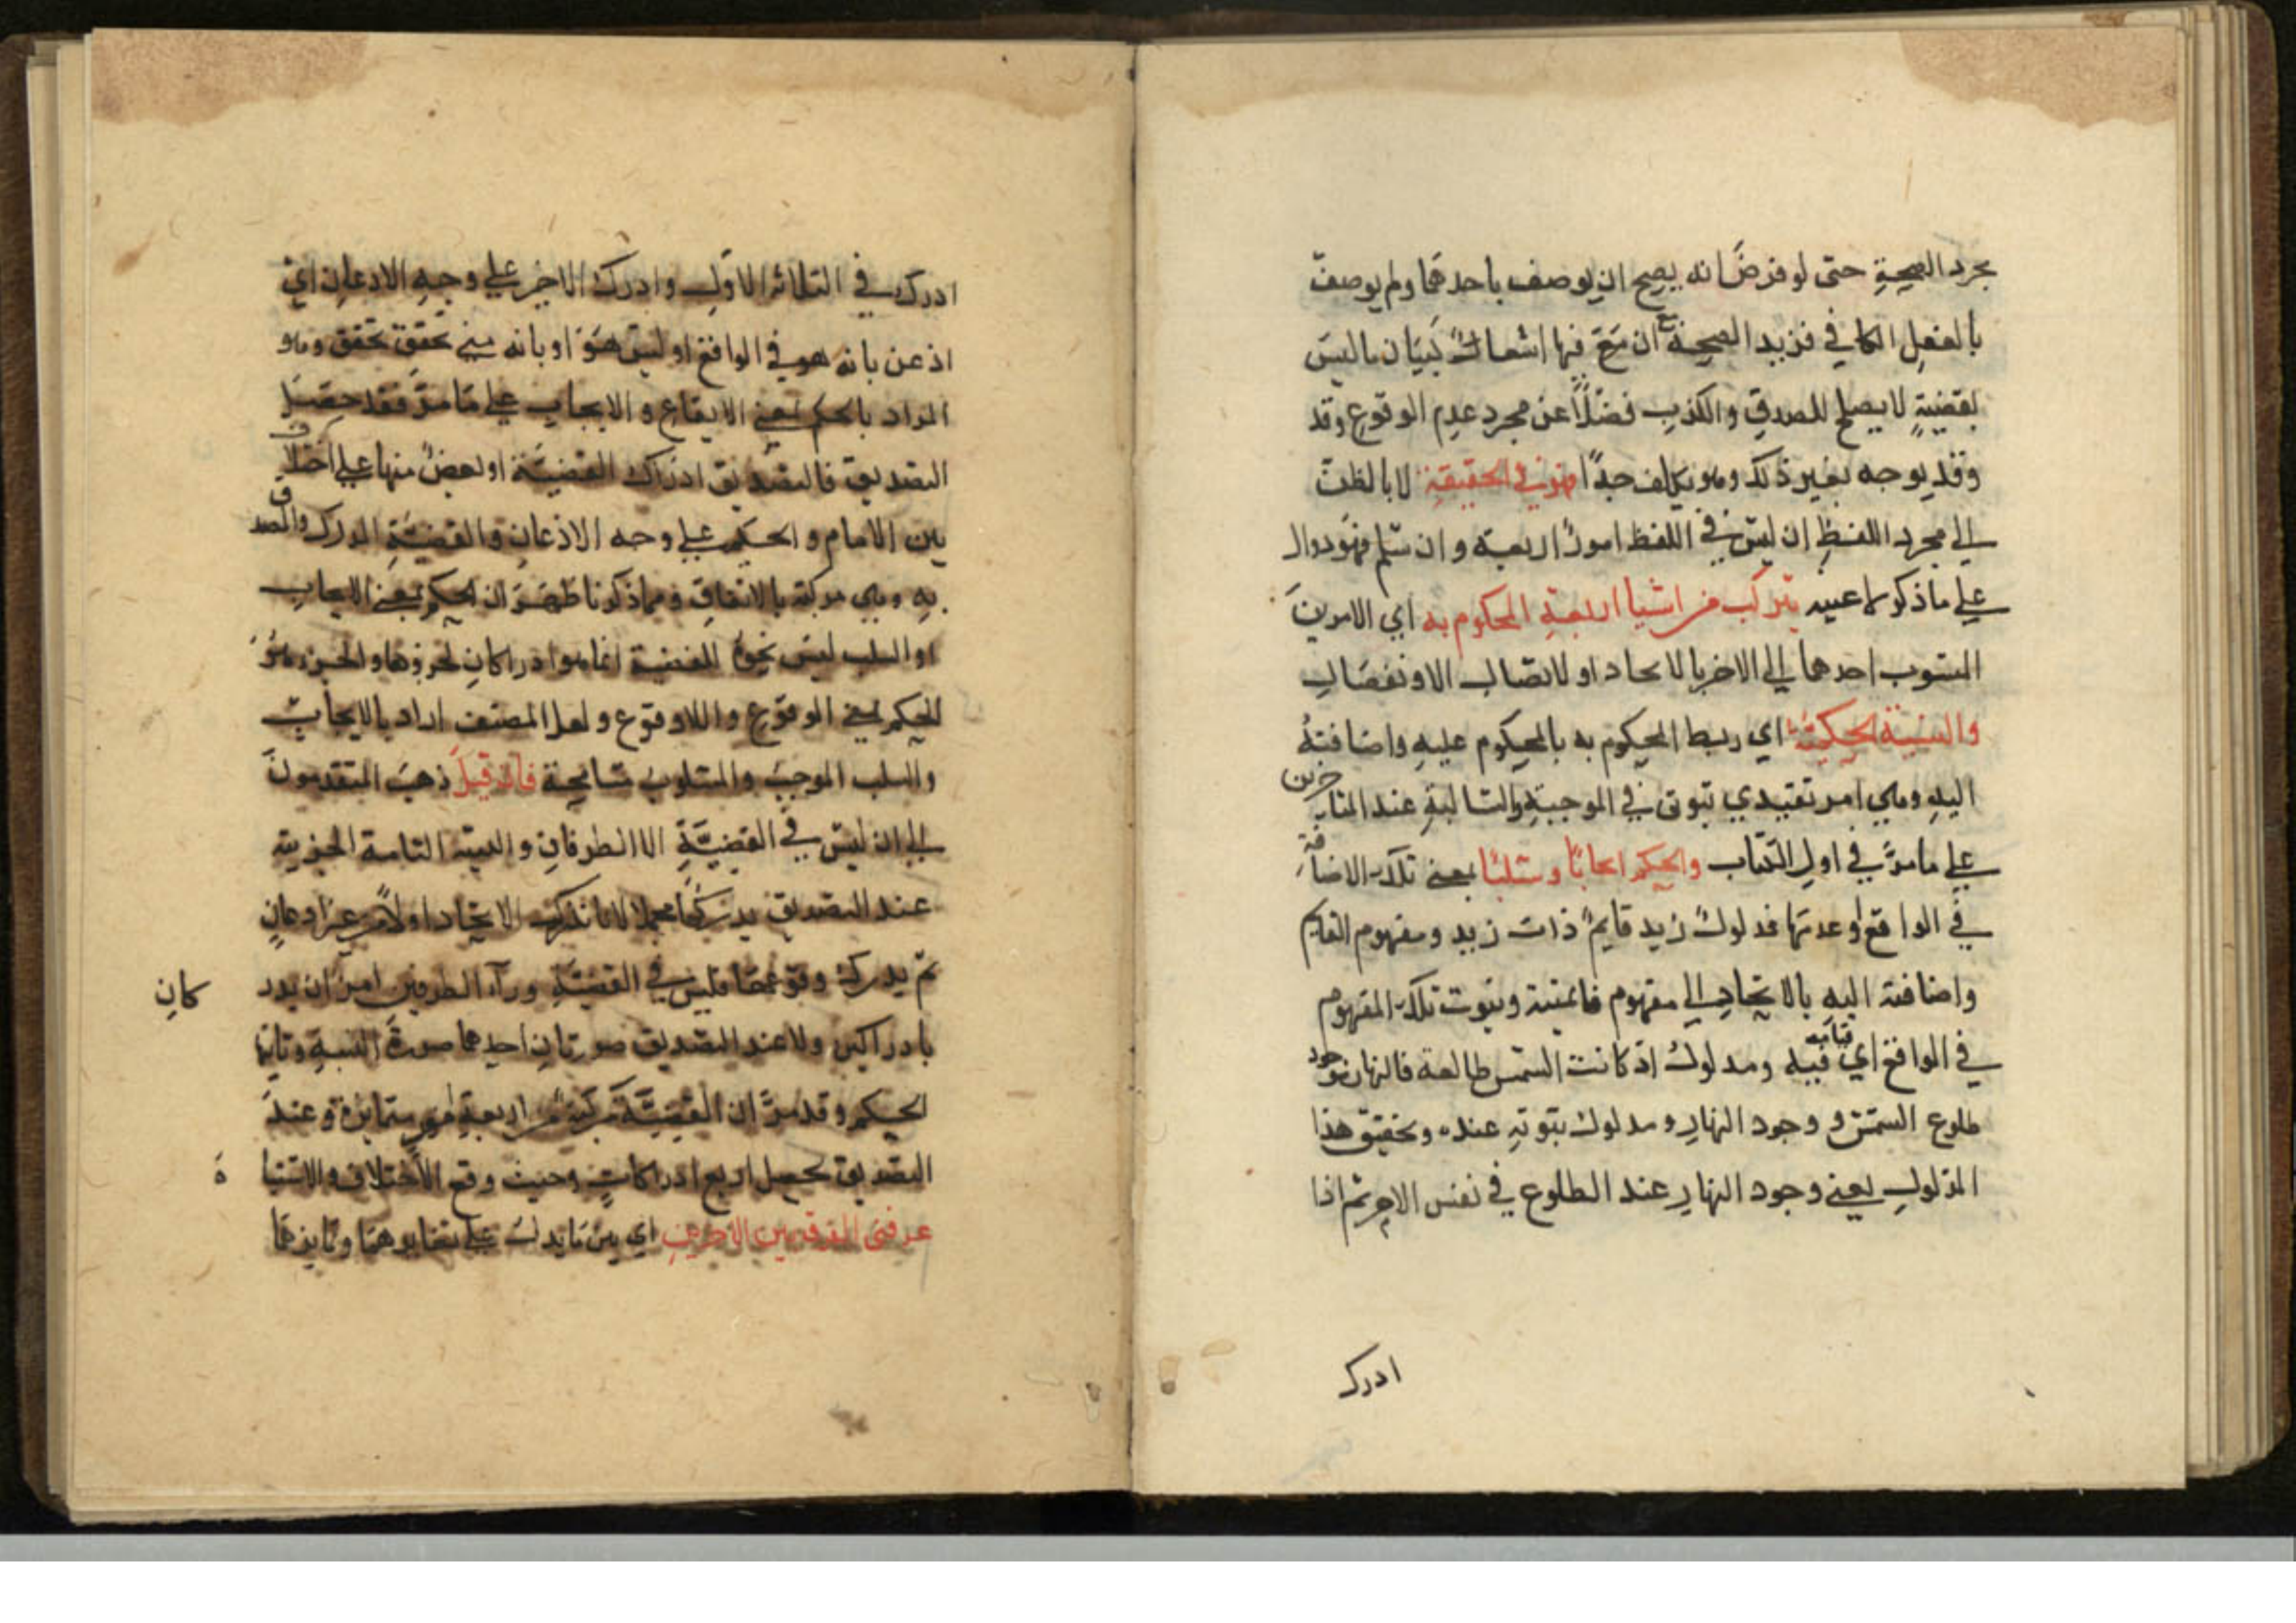 بجرد الصحة حتى لو فرض انه يصح ان يوصف باحدهما ولم يوصف
بالفعل لكافي فزيد الصحة ان مع فيها اشعارا ببيان ما ليس
بقضية لا يصلح للصدق والكذب فضلا عن مجرد عدم الوقوع وقد
وقد يوجه بغير ذلك وهو تكلف جدا فهي في الحقيقة لا بالظت
الى مجرد اللفظ ان ليس في اللفظ امور اربعة وان سلم فهو دوال
على ما ذكر لا عينه يتركب من اشيا اربعة المحكوم به اي الامرين
المنسوب احدهما الى الاخر بالاتحاد او لاتصال الاو نفصال
والنسبة الحكمية اي ربط المحكوم به بالمحكوم عليه واضافته
اليه وهي امر تقييدي ثبوتي في الموجبة والسالبة عند المتاخرين
على ما مر في اول الكتاب والحكم ايجابا وسلبا بمعنى تلك الاضافة
في الواقع او عدمها فمدلول زيد قايم ذات زيد ومفهوم القايم
واضافته اليه بالاتحاد الى مفهوم وثبوت تلك المفهوم
في الواقع اي قيامه فيه ومدلول اذ كانت الشمس طالعة فالنهار موجود
طلوع الشمس و وجود النهار ومدلول ثبوته عنده وتحقيق هذا
المدلول يعني وجود النهار عند الطلوع في نفس الامر ثم اذا
ادرك
ادرك في الثلاثة الاول وادرك الاخير على وجه الاذعان اي
اذعن بانه هو في الواقع او ليس هو او بانه متى تحقق تحقق وهو
المراد بالحكم بمعنى الايقاع والايجاب على ما مر فقد حصل
التصديق فالتصديق ادراك القضية او بعض منها على اختلاف
بين الامام والحكيم على وجه الاذعان والقضية المدرك والمصدق
به وهي مركبة بالاتفاق ومما ذكرنا ظهر ان الحكم بمعنى الايجاب
او السلب ليس بجزء القضية انما هو ادراكان لجزؤها والجزء هو
الحكم بمعنى الوقوع واللا وقوع ولعل المصنف اراد بالايجاب
والسلب الموجب والمسلوب مسامحة فان قيل ذهب المتقدمون
الى ان ليس في القضية الا الطرفان والنسبة التامة الخبرية
عند التصديق يدركها مجملا لا نا ندرك الاتحاد اولا من غير اذعان
ثم يدرك وقوعها فليس في القضية وراء الطرفين امر ان يدر كان
بادراكين ولا عند التصديق صورتان احدهما صورة النسبة وثانيها
الحكم وقد مر ان القضية مركبة من اربعة امور متمايزة وعند
التصديق يحصل اربع ادراكات وحيث وقع الاختلاف والاشتباه
عرفني الفرق بين الاخرين اي بين ما يدل على تغايرهما وتمايزهما